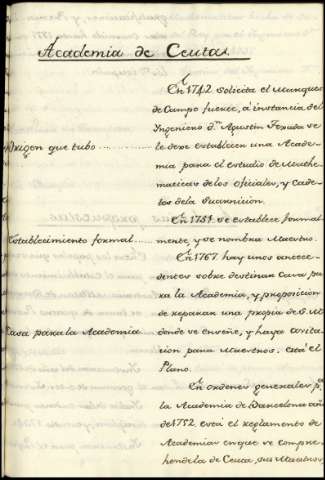 Academia de Ceuta
En 1742 solicita el Marques
de Campo fuerte, á instancia del
Ingeniero Dn. Agustin
Origen que tubo ............ se
le dexe establecer una Acade-
mia para el estudio de Mathe-
maticas de los oficiales, y cade-
tes de la Guarnicion.
En 1751 se establece formal-
Establecimiento formal ..... mente, y se nombra Maestro.
En 1767 hay unos antece-
dentes sobre destinar Casa pa-
ra la Academia, y proposicion
de reparar una propia de S.M.
Casa para la Academia donde se enseñe, y haya avita-
cion para Maestros. está el
Plano.
En ordenes generales pa.
la Academia de Barcelona año
de 1752 está el reglamento de
Academias en que se compre-
hende la de Ceuta, sus Maestros